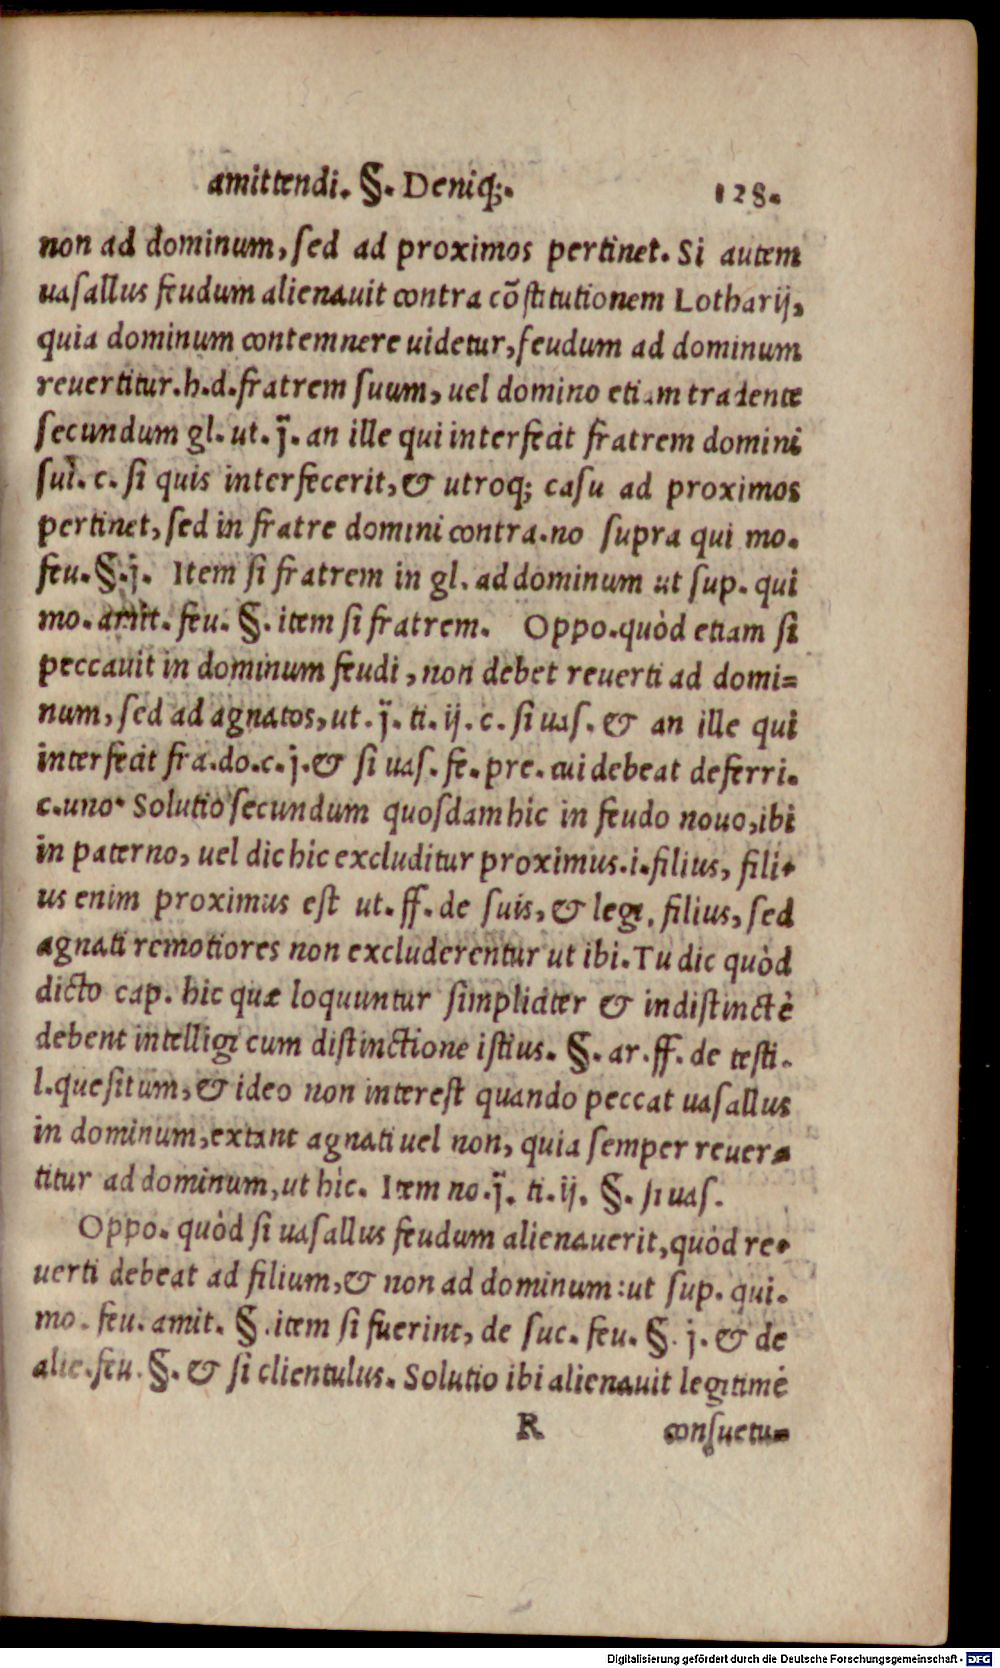 amittendi. §. Deniq;. 128.
non ad dominum, sed ad proximos pertinet. Si autem
uasallus feudum alienauit contra cõstitutionem Lotharij,
quia dominum contemnere uidetur, feudum ad dominum
reuertitur. h. d. fratrem suum, uel domino etiam tradente
secundum gl. ut. j̈. an ille qui interfecit fratrem domini
sui. c. si quis interfecerit, & utroq; casu ad proximos
pertinet, sed in fratre domini contra. no supra qui mo.
feu. §. j. Item si fratrem in gl. ad dominum ut sup. qui
mo. amit. feu. §. item si fratrem. Oppo. quòd etiam si
peccauit in dominum feudi, non debet reuerti ad domi=
num, sed ad agnatos, ut. j̈. ti. ij. c. si uas. & an ille qui
interfecit fra. do. c. j. & si uas. fe. pre. cui debeat deferri.
c. uno. Solutio secundum quosdam hic in feudo nouo, ibi
in paterno, uel dic hic excluditur proximus. i. filius, fili-
us enim proximus est ut. ff. de suis, & legi. filius, sed
agnati remotiores non excluderentur ut ibi. Tu dic quòd
dicto cap. hic quæ loquuntur simpliciter & indistinctè
debent intelligi cum distinctione istius. §. ar. ff. de testi.
l. quesitum, & ideo non interest quando peccat uasallus
in dominum, extant agnati uel non, quia semper reuer=
titur ad dominum, ut hic. Item no. j̈. ti. ij. §. si uas.
Oppo. quòd si uasallus feudum alienauerit, quòd re-
uerti debeat ad filium, & non ad dominum: ut sup. qui.
mo. feu. amit. §. item si fuerint, de suc. feu. §. j. & de
alie. feu. §. & si clientulus. Solutio ibi alienauit legitimè
R consuetu=
Digitalisierung gefördert durch die Deutsche Forschungsgemeinschaft - DFG